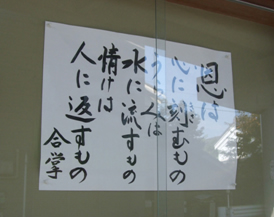 恩は
心に刻むもの
うらみは
水に流すもの
情けは
人に返すもの
合掌